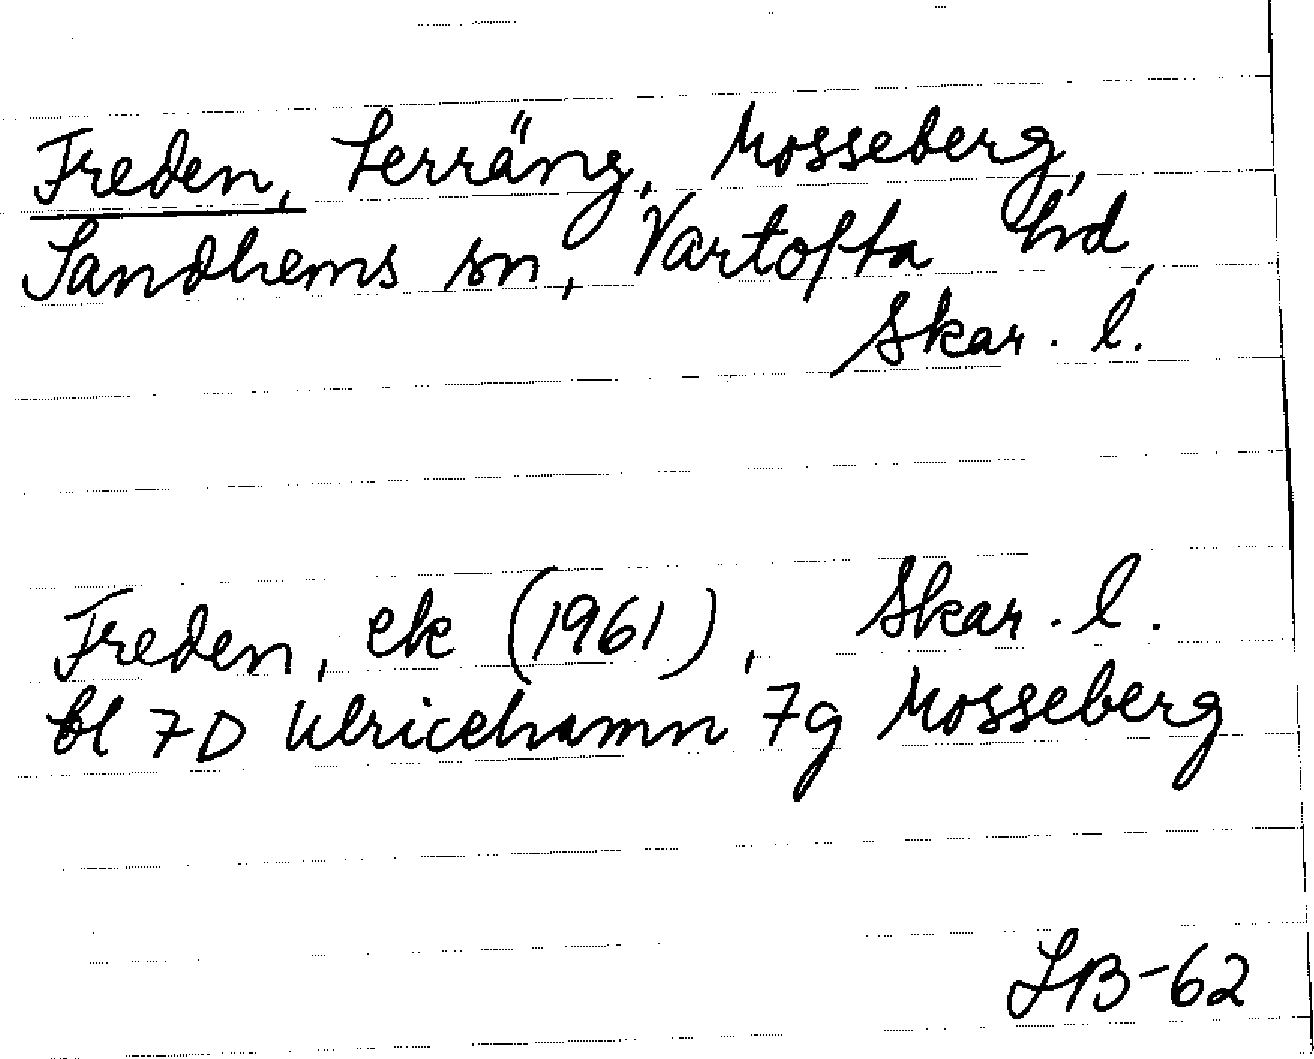 Freden, terräng, Mosseberg,
Sandhems sn, Vartofta hd,
Skar. l.
Freden, ek (1961), Skar. l.
bl 7D Ulricehamn 7g Mosseberg
LB-62